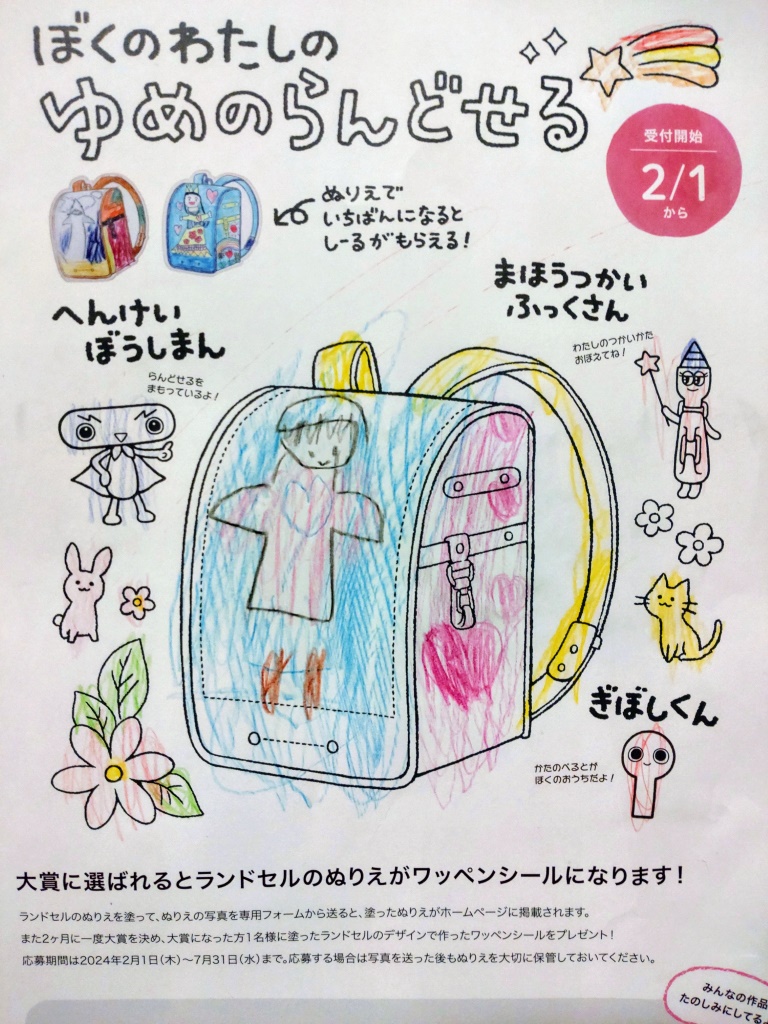 ぼくのわたしの
ゆめのらんどせる
受付開始
2/1
から
ぬりえで
いちばんになると
しーるがもらえる!
まほうつかい
ふっくさん
わたしのつかいかた
おぼえてね!
へんけい
ぼうしまん
らんどせるを
まもっているよ!
ぎぼしくん
かたのべるとが
ぼくのおうちだよ!
大賞に選ばれるとランドセルのぬりえがワッペンシールになります!
ランドセルのぬりえを塗って、ぬりえの写真を専用フォームから送ると、塗ったぬりえがホームページに掲載されます。
また2ヶ月に一度大賞を決め、大賞になった方1名様に塗ったランドセルのデザインで作ったワッペンシールをプレゼント!
応募期間は2024年2月1日(木)〜7月31日(水)まで。応募する場合は写真を送った後もぬりえを大切に保管しておいてください。
みんなの作品
たのしみにしてる